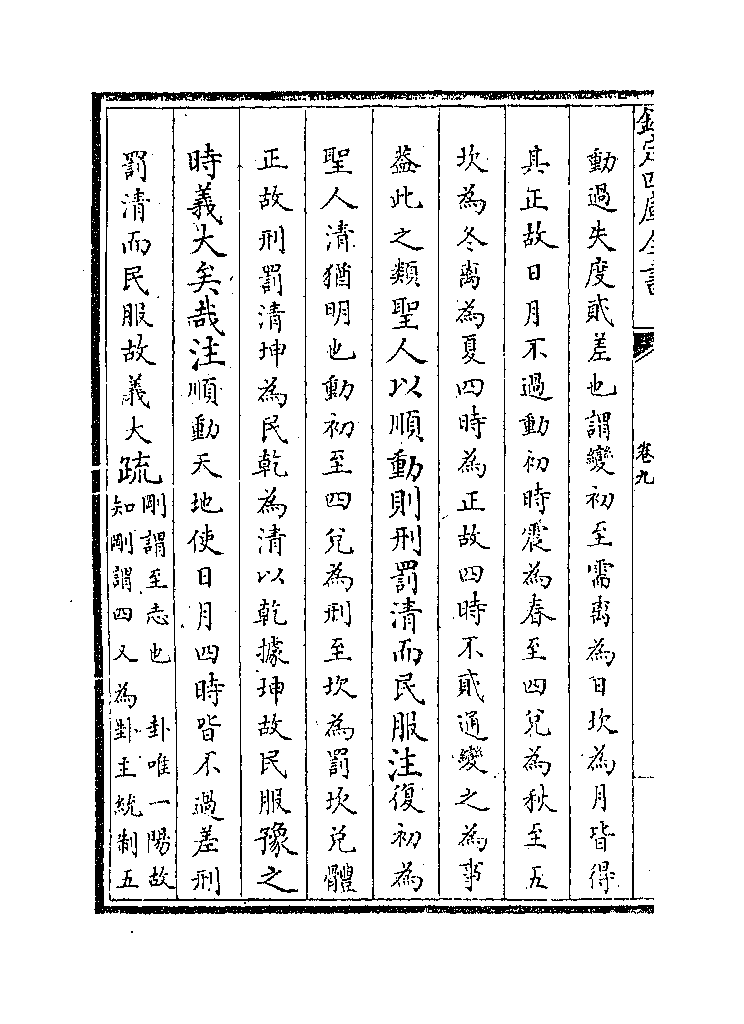 欽定四庫全書
卷九
動過失度貳差也謂變初至需离為日坎為月皆得
其正故日月不過動初時震為春至四兌為秋至五
坎為冬离為夏四時為正故四時不貳通變之為事
葢此之類聖人以順動則刑罰清而民服注復初為
聖人清猶明也動初至四兌為刑至坎為罰坎兌體
正故刑罰清坤為民乾為清以乾據坤故民服豫之
時義大矣哉注順動天地使日月四時皆不過差刑
罰清而民服故義大疏剛謂至志也 卦唯一陽故
知剛謂四又為卦主統制五